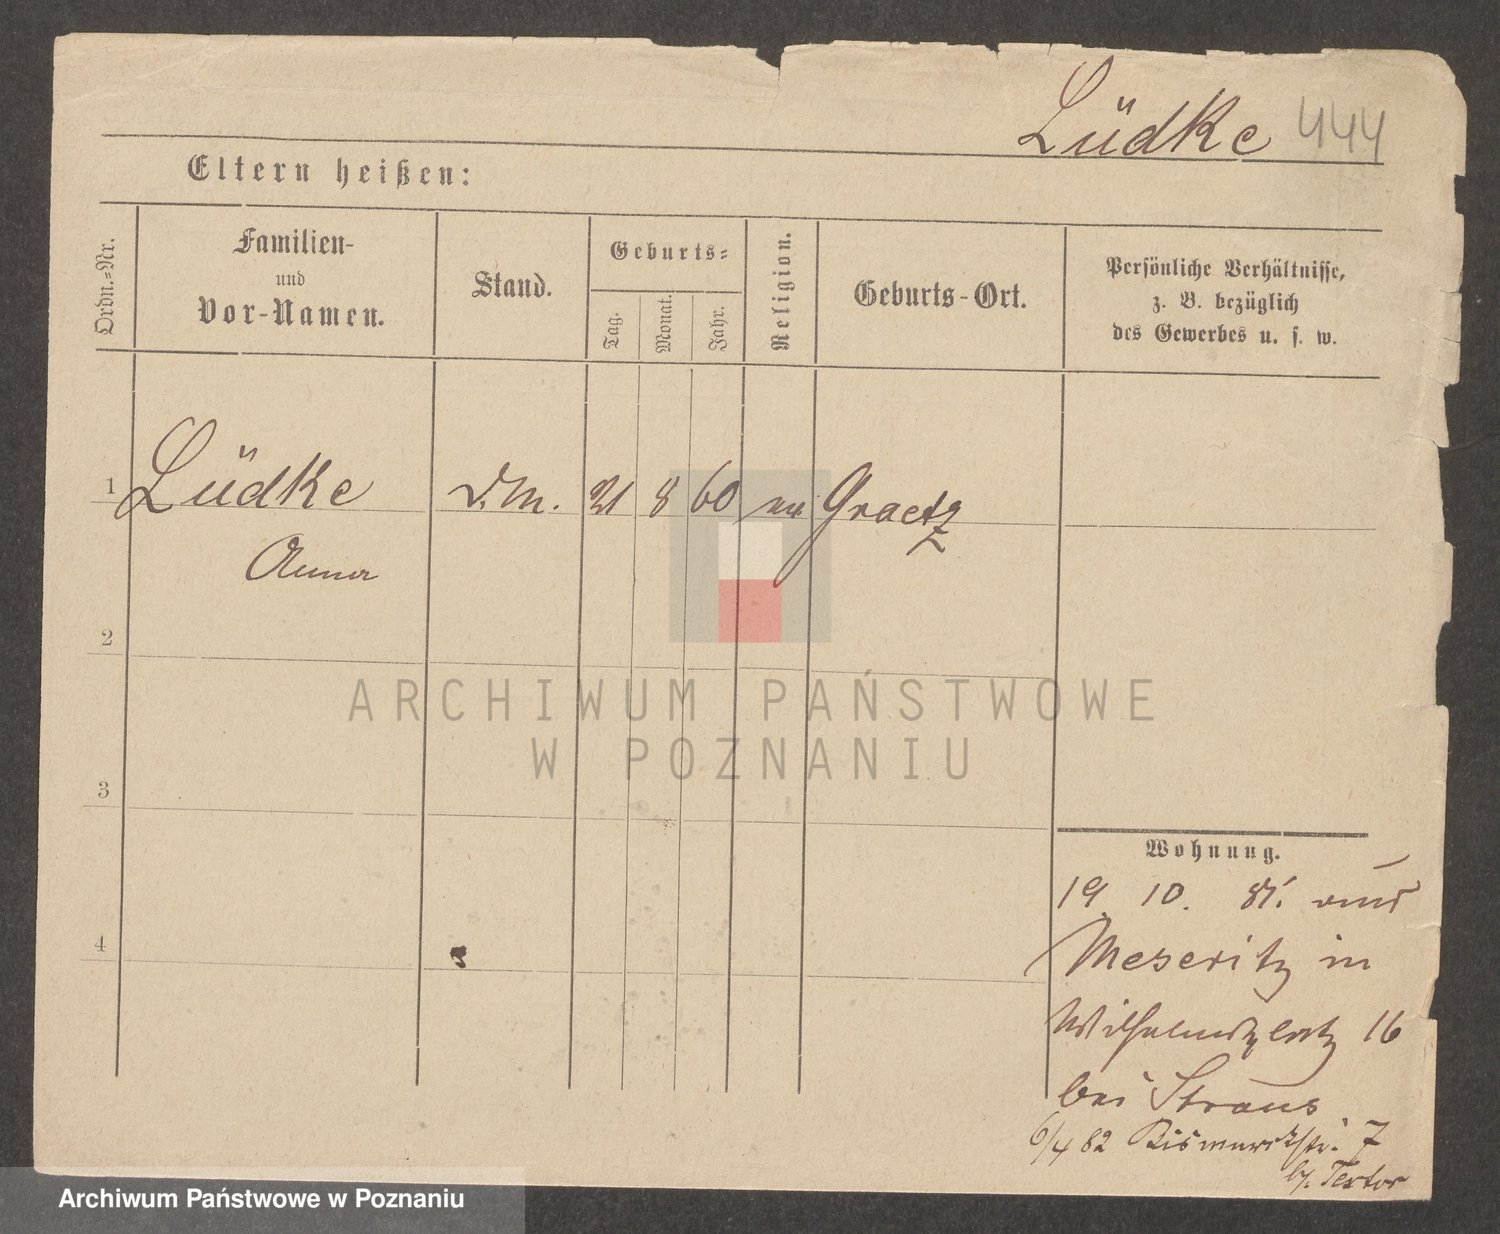 Lüdke 444
Eltern heißen:
Ordn.-Nr.
Familien-
und
Vor-Namen.
Stand.
Geburts-
Tag.
Monat.
Jahr.
Religion.
Geburts-Ort.
Persönliche Verhältnisse,
z. B. bezüglich
des Gewerbes u. s. w.
1 Lüdke D.M. 21 8 60 Graetz
Anna
2
3
4
ARCHIWUM PAŃSTWOWE
W POZNANIU
Wohnung.
19 10. 81. aus
Meseritz in
Wilhelmsplatz 16
bei Straus
6/4 82 Bismarckstr. 7
b. Textor
Archiwum Państwowe w Poznaniu